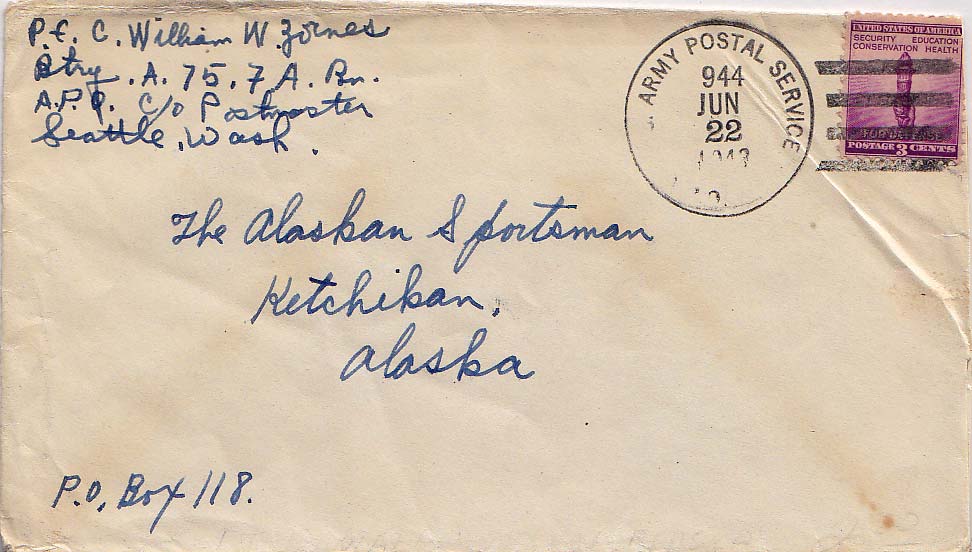 P.F.C. William W. Zornes
Btry. A. 75. F A. Bn.
A.P.O. c/o Postmaster
Seattle, Wash.
ARMY POSTAL SERVICE
944
JUN
22
1943
UNITED STATES OF AMERICA
SECURITY EDUCATION
CONSERVATION HEALTH
FOR DEFENSE
POSTAGE 3 CENTS
The Alaskan Sportsman
Ketchikan,
Alaska
P.O. Box 118.